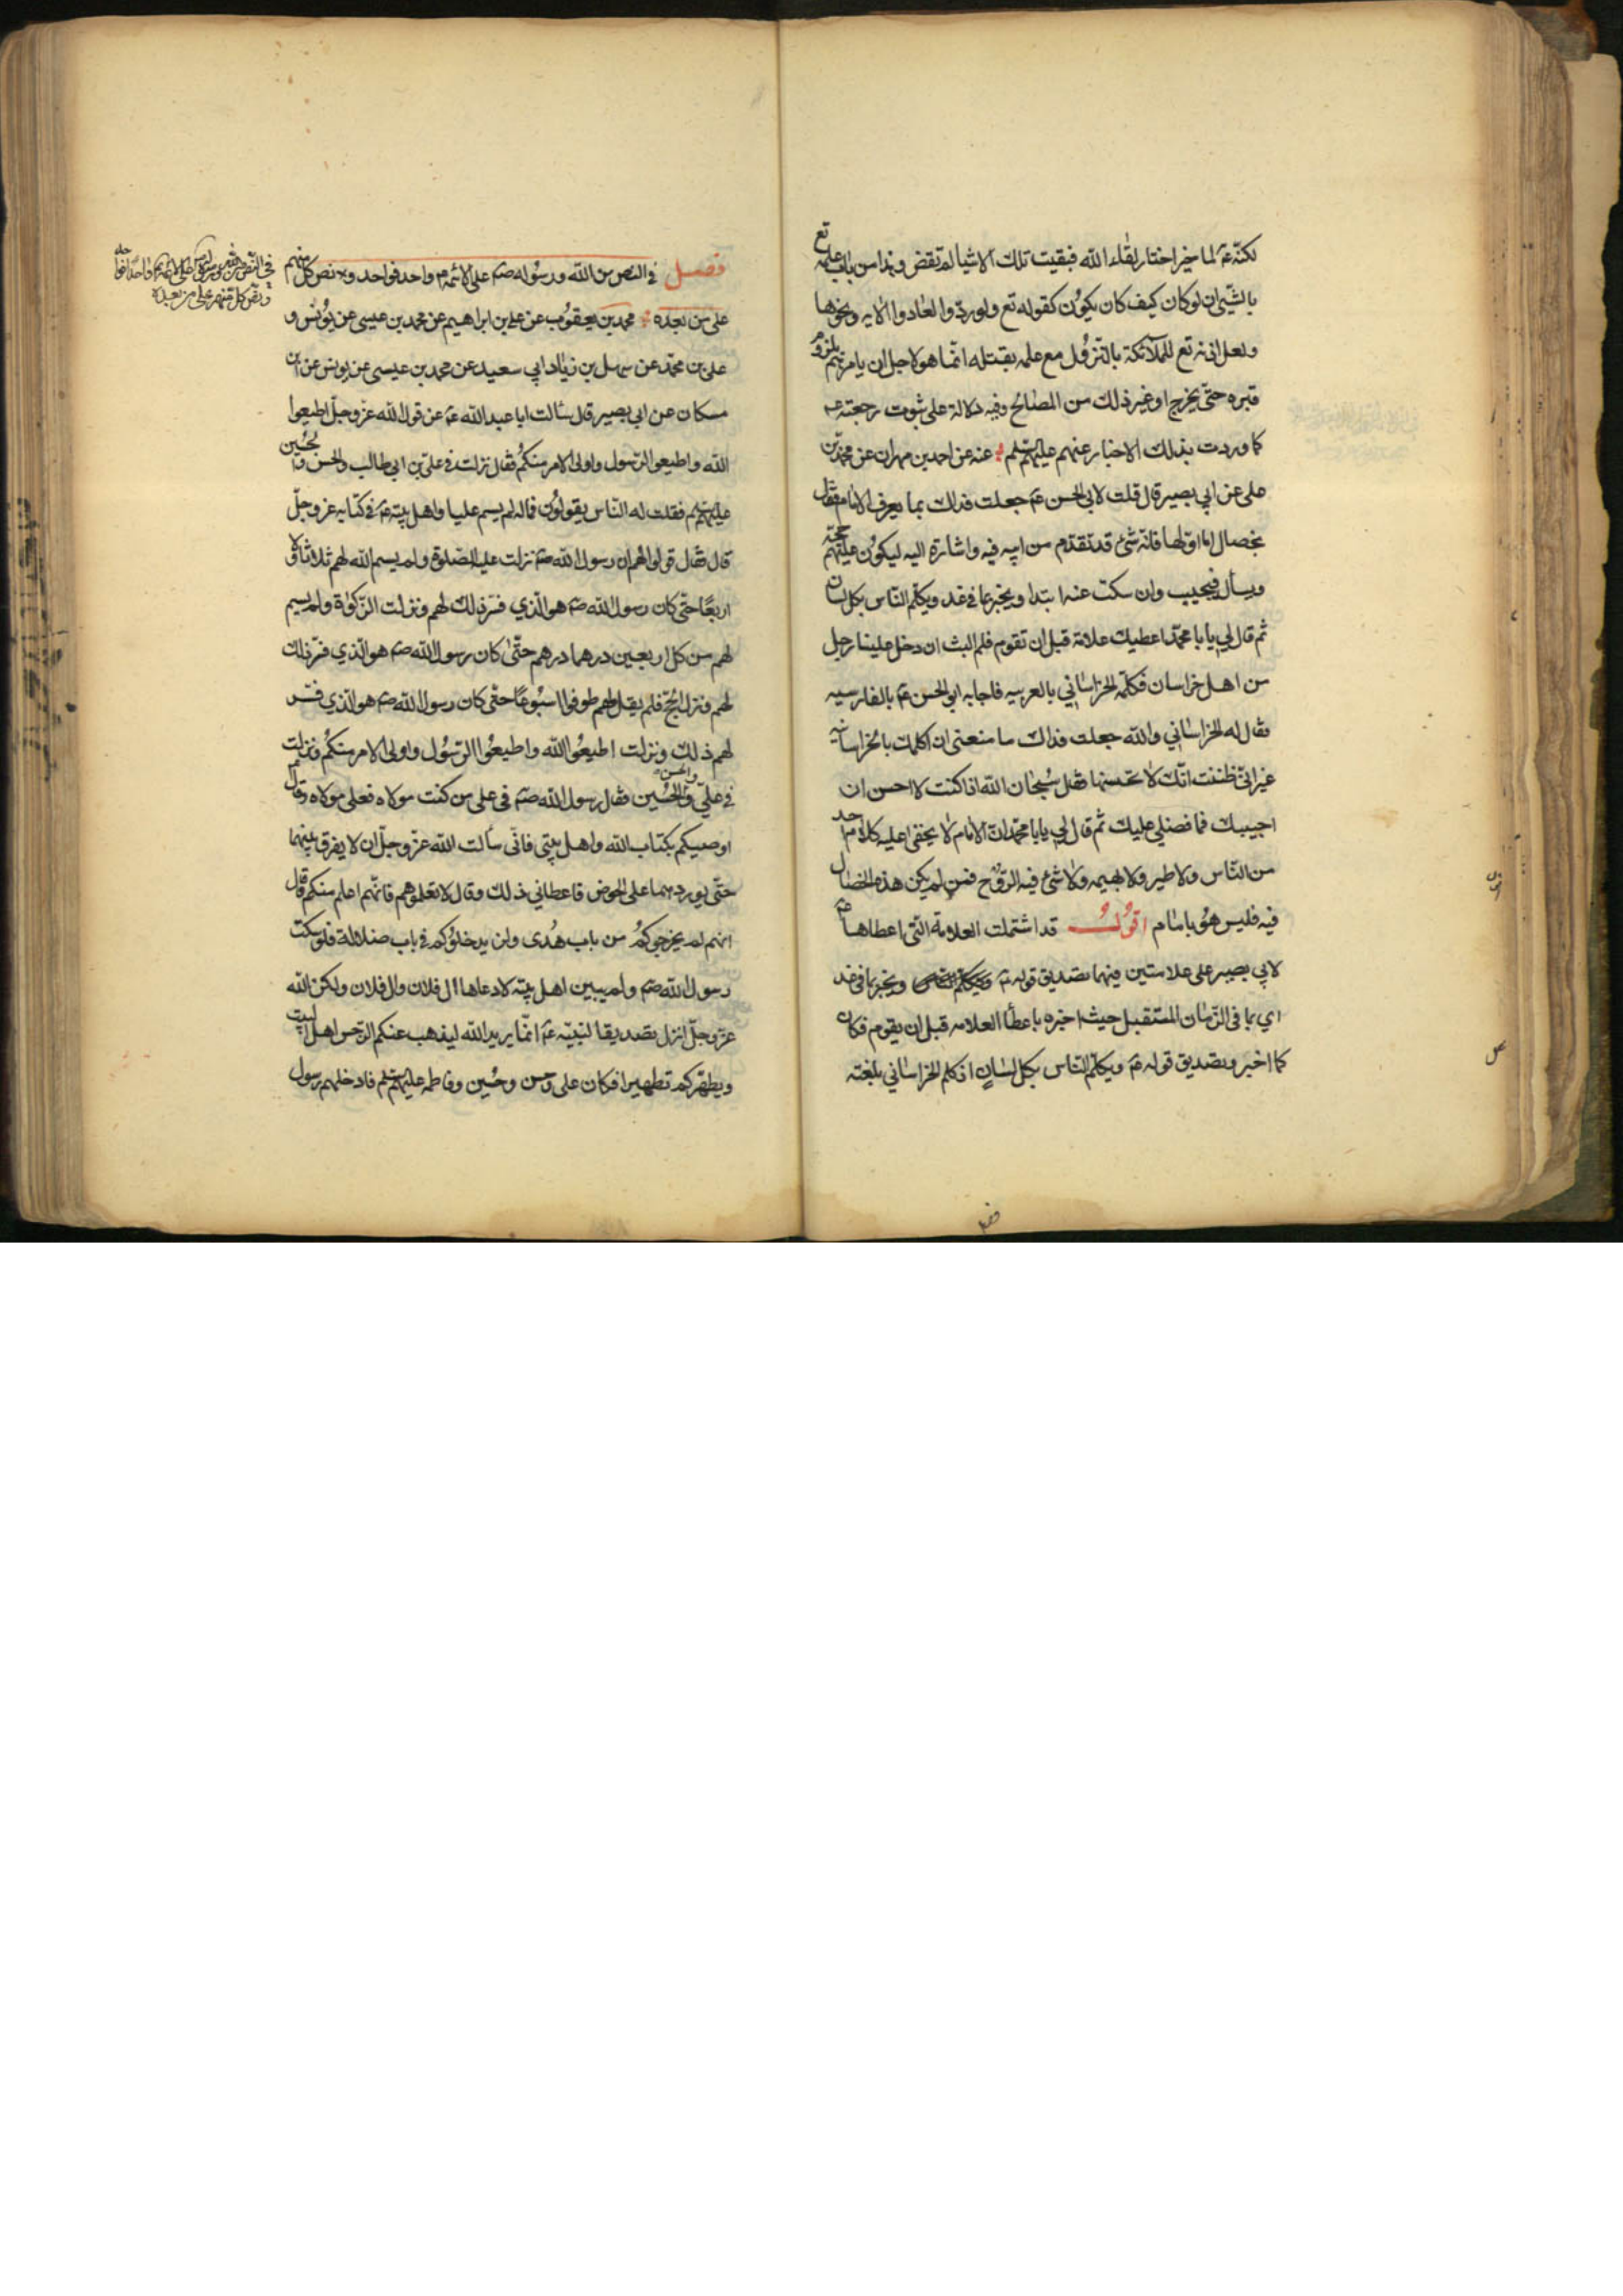 لكنّه عم لما خير اختار لقاء الله فبقيت تلك الاشيا لم تقض وبدا من باب علمه تع
بالشئ ان لو كان كيف كان يكون كقوله تع ولو ردّوا لعادوا الايه ونحوها
ولعل اذنه تع للملآئكة بالنزول مع علمه بقتله انما هو لاجل ان يامرهم بلزوم
قبره حتّى يخرج او غير ذلك من المصالح وفيه دلالة على ثبوت رجعته عم
كما وردت بذلك الاخبار عنهم عليهم السلم عنه عن احمد بن مهران عن محمد بن
على عن ابي بصير قال قلت لابى الحسن عم جعلت فداك بما يعرف الامام فقال
بخصال اما اوّلها فانّه شئ قد تقدّم من ابيه فيه واشارة اليه ليكون عليهم حجّة
ويسأل فيجيب وان سكت عنه ابتدا ويخبر بما في غد ويكلم الناس بكل لسان
ثم قال لي يا با محمّد اعطيك علامة قبل ان تقوم فلم البث ان دخل علينا رجل
من اهل خراسان فكلّمه الخراساني بالعربيه فاجابه ابو الحسن عم بالفارسيه
فقال له الخراساني والله جعلت فداك ما منعنى ان اكلمك بالخراسانيّه
غير انى ظننت انّك لا تحسنها فقال سُبحان الله اذا كنت لا احسن ان
اجيبك فما فضلي عليك ثم قال لي يا با محمّد انّ الامام لا يخفى عليه كلام احد
من النّاس ولا طير ولا بهيمه ولا شئ فيه الرّوح فمن لم يكن هذه الخصال
فيه فليس هو بامام اقول قد اشتملت العلامة التى اعطاها عم
لابي بصير على علامتين فيهما تصديق قوله عم ويكلم الناس ويخبر بما فى غد
اي بما فى الزّمان المستقبل حيث اخبره باعطأ العلامه قبل ان يقوم فكان
كما اخبر وتصديق قوله عم ويكلّم الناس بكل لسان اذ كلم الخراساني بلغته
فصل في النص من الله ورسوله صم على الائمّه م واحد فواحد ونص كل منهم
على من بعده محمد بن يعقوب عن على بن ابراهيم عن محمد بن عيسى عن يونس و
على بن محمّد عن سهل بن زياد ابي سعيد عن محمد بن عيسى عن يونس عن ابن
مسكان عن ابي بصير قال سالت ابا عبد الله عم عن قول الله عزّ وجلّ اطيعوا
الله واطيعوا الرّسول واولى الامر منكم فقال نزلت في علىّ بن ابي طالب والحسن والحُسَين
عليهم السلم فقلت له ان النّاس يقولون فما له لم يسم عليا واهل بيته عم في كتابه عز وجلّ
قال فقال قولوا لهم ان رسول الله صم نزلت عليه الصّلوة ولم يسم الله لهم ثلاثا ولا
اربعًا حتّى كان رسول الله صم هو الّذي فسّر ذلك لهم ونزلت الزّكوة ولم يسم
لهم من كل اربعين درهما درهم حتّى كان رسول الله صم هو الّذي فسّر ذلك
لهم ونزل الحجّ فلم يقل لهم طوفوا اسبُوعًا حتّى كان رسول الله صم هو الّذي فسّر
لهم ذلك ونزلت اطيعُوا الله واطيعُوا الرّسُول واولى الامر منكُم ونزلت
في علىّ والحسن والحُسَين فقال رسول الله صم فى على من كنت مولاه فعلى مولاه وقال
اوصيكم بكتاب الله واهل بيتى فانّى سألت الله عزّ وجلّ ان لا يفرق بينهما
حتّى يوردهما على الحوض فاعطاني ذلك وقال لا تعلموهم فانّهم اعلم منكم وقال
انهم لم يخرجوكم من باب هُدى ولن يدخلوكم في باب ضلالة فلو سكت
رسول الله صم ولم يبين اهل بيته لادعاها ال فلان وال فلان ولكن الله
عزّ وجلّ انزل تصديقا لنبيّه عم انّما يريد الله ليذهب عنكم الرّجس اهل البيت
ويطهّركم تطهيرا فكان على وحسن وحُسَين وفاطمه عليهم السلم فادخلهم رسول
في النّص من الله ورسوله على الائمّه واحدًا فواحدًا
ونصّ كل منهم على من بعده